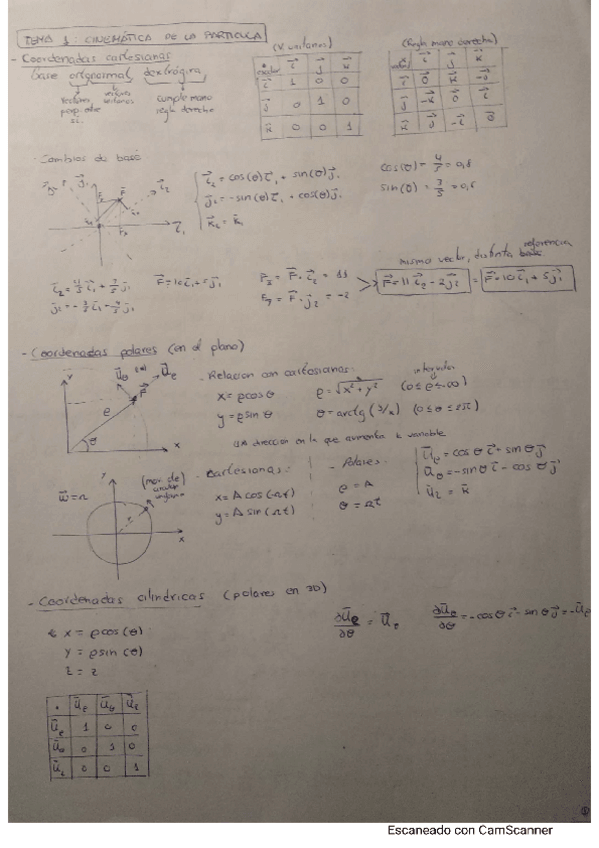 TEMA 1: CINEMÁTICA DE LA PARTÍCULA
- Coordenadas cartesianas
base ortonormal dextrógira
vectores perp. entre sí.
vectores unitarios
cumple mano regla derecha
(V. unitarios)
escalar i j k
i 1 0 0
j 0 1 0
k 0 0 1
(Regla mano derecha)
i j k
i 0 k -j
j -k 0 i
k j -i 0
· Cambios de base
i₂ = cos(θ)i₁ + sin(θ)j₁
j₂ = -sin(θ)i₁ + cos(θ)j₁
k₂ = k₁
cos(θ) = 4/5 = 0,8
sin(θ) = 3/5 = 0,6
i₂ = 4/5 i₁ + 3/5 j₁
j₂ = -3/5 i₁ + 4/5 j₁
F = 10i₁ + 5j₁
F · i₂ = 11
F · j₂ = -2
mismo vector, distinta referencia
F = 11i₂ - 2j₂ = F = 10i₁ + 5j₁
- Coordenadas polares (en el plano)
Y
X
ρ
θ
· Relación con cartesianas:
x = ρcosθ
y = ρsinθ
ρ = √x² + y² (0 ≤ ρ ≤ ∞)
θ = arctg (y/x) (0 ≤ θ ≤ 2π)
dirección en la que aumenta la variable
u_ρ = cos θ i + sin θ j
u_θ = -sin θ i - cos θ j
u_z = k
ω = Ω
(mov. de circular uniforme)
- Cartesianas:
x = A cos(Ωt)
y = A sin(Ωt)
- Polares:
ρ = A
θ = Ωt
- Coordenadas cilíndricas (polares en 3D)
x = ρcos(θ)
y = ρsin(θ)
z = z
· u_ρ u_θ u_z
u_ρ 1 0 0
u_θ 0 1 0
u_z 0 0 1
Escaneado con CamScanner